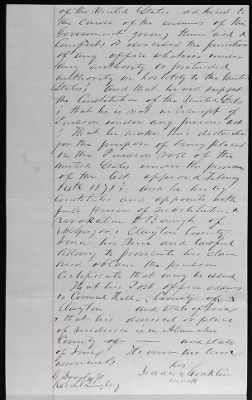 of the United States adhered to
the cause of the enemies of the
Government giving them aid &
comfort or exercised the functions
of any office whatever under
any authority or pretended
authority in hostility to the United
States; and that he will support
the Constitution of the United States
; that he is not in receipt of
Pension under any previous act
; That he makes this declaration
for the purpose of being placed
on the Pension roll of the
United States under the provision
of the Act approved Feby
14th 1871; and he hereby
constitutes and appoints with
full power of substitution &
revocation
McGregor Clayton County
Iowa his true and lawful
attorney to prosecute his claim
and obtain the pension
Certificate that may be issued
That his Post office address
is County of
Clayton and State of Iowa
& that his domicil or place
of residence is
County of and state
of Iowa
his
Isaac Conklin
mark